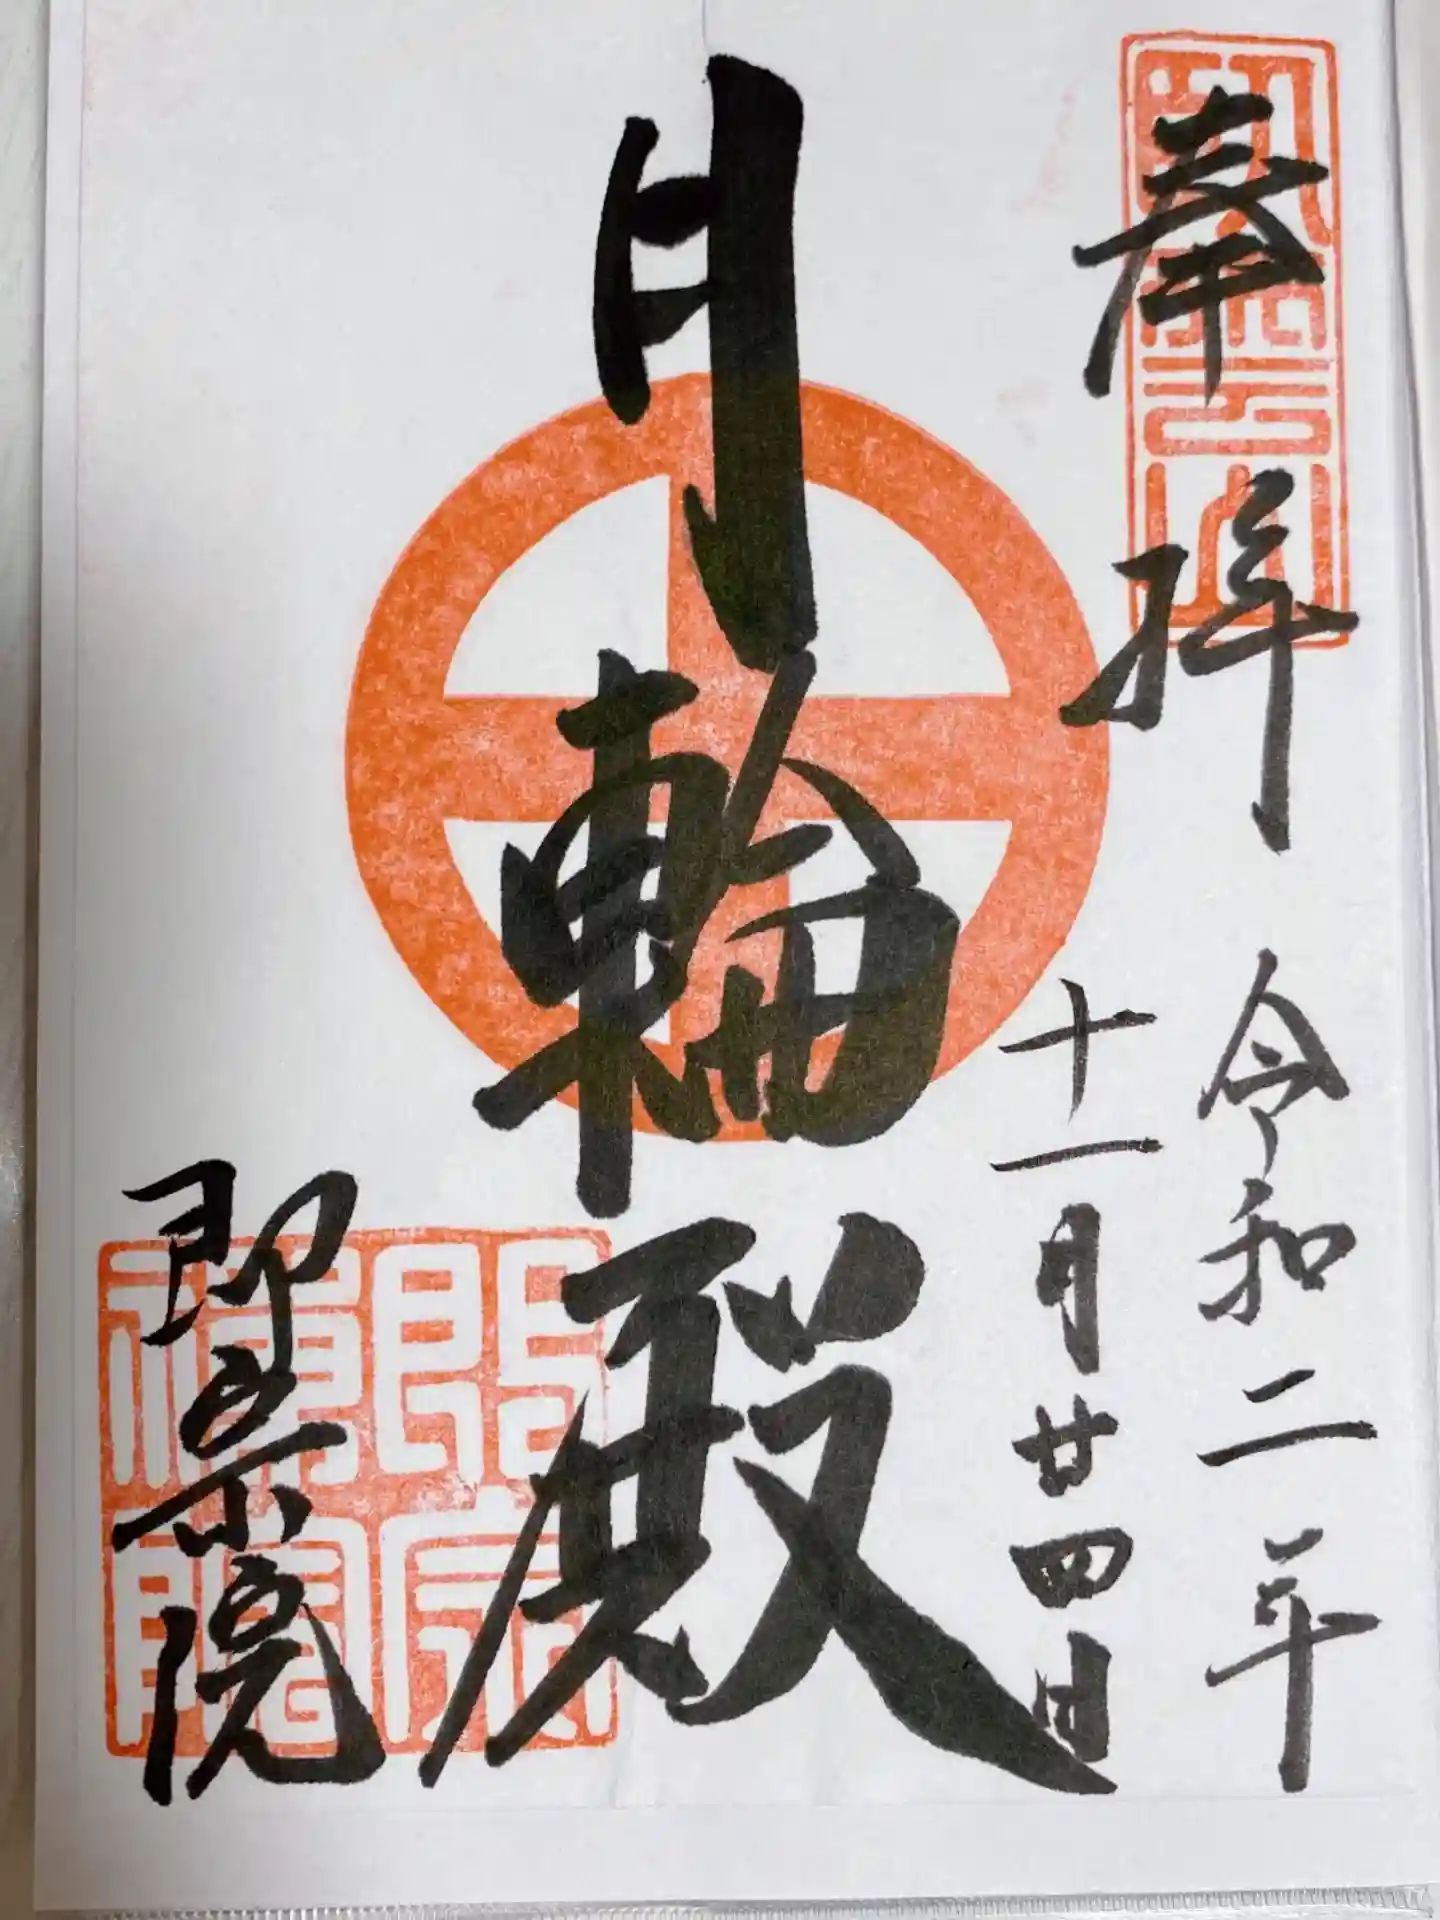 奉拝
令和二年
十一月廿四日
月輪殿
即宗院